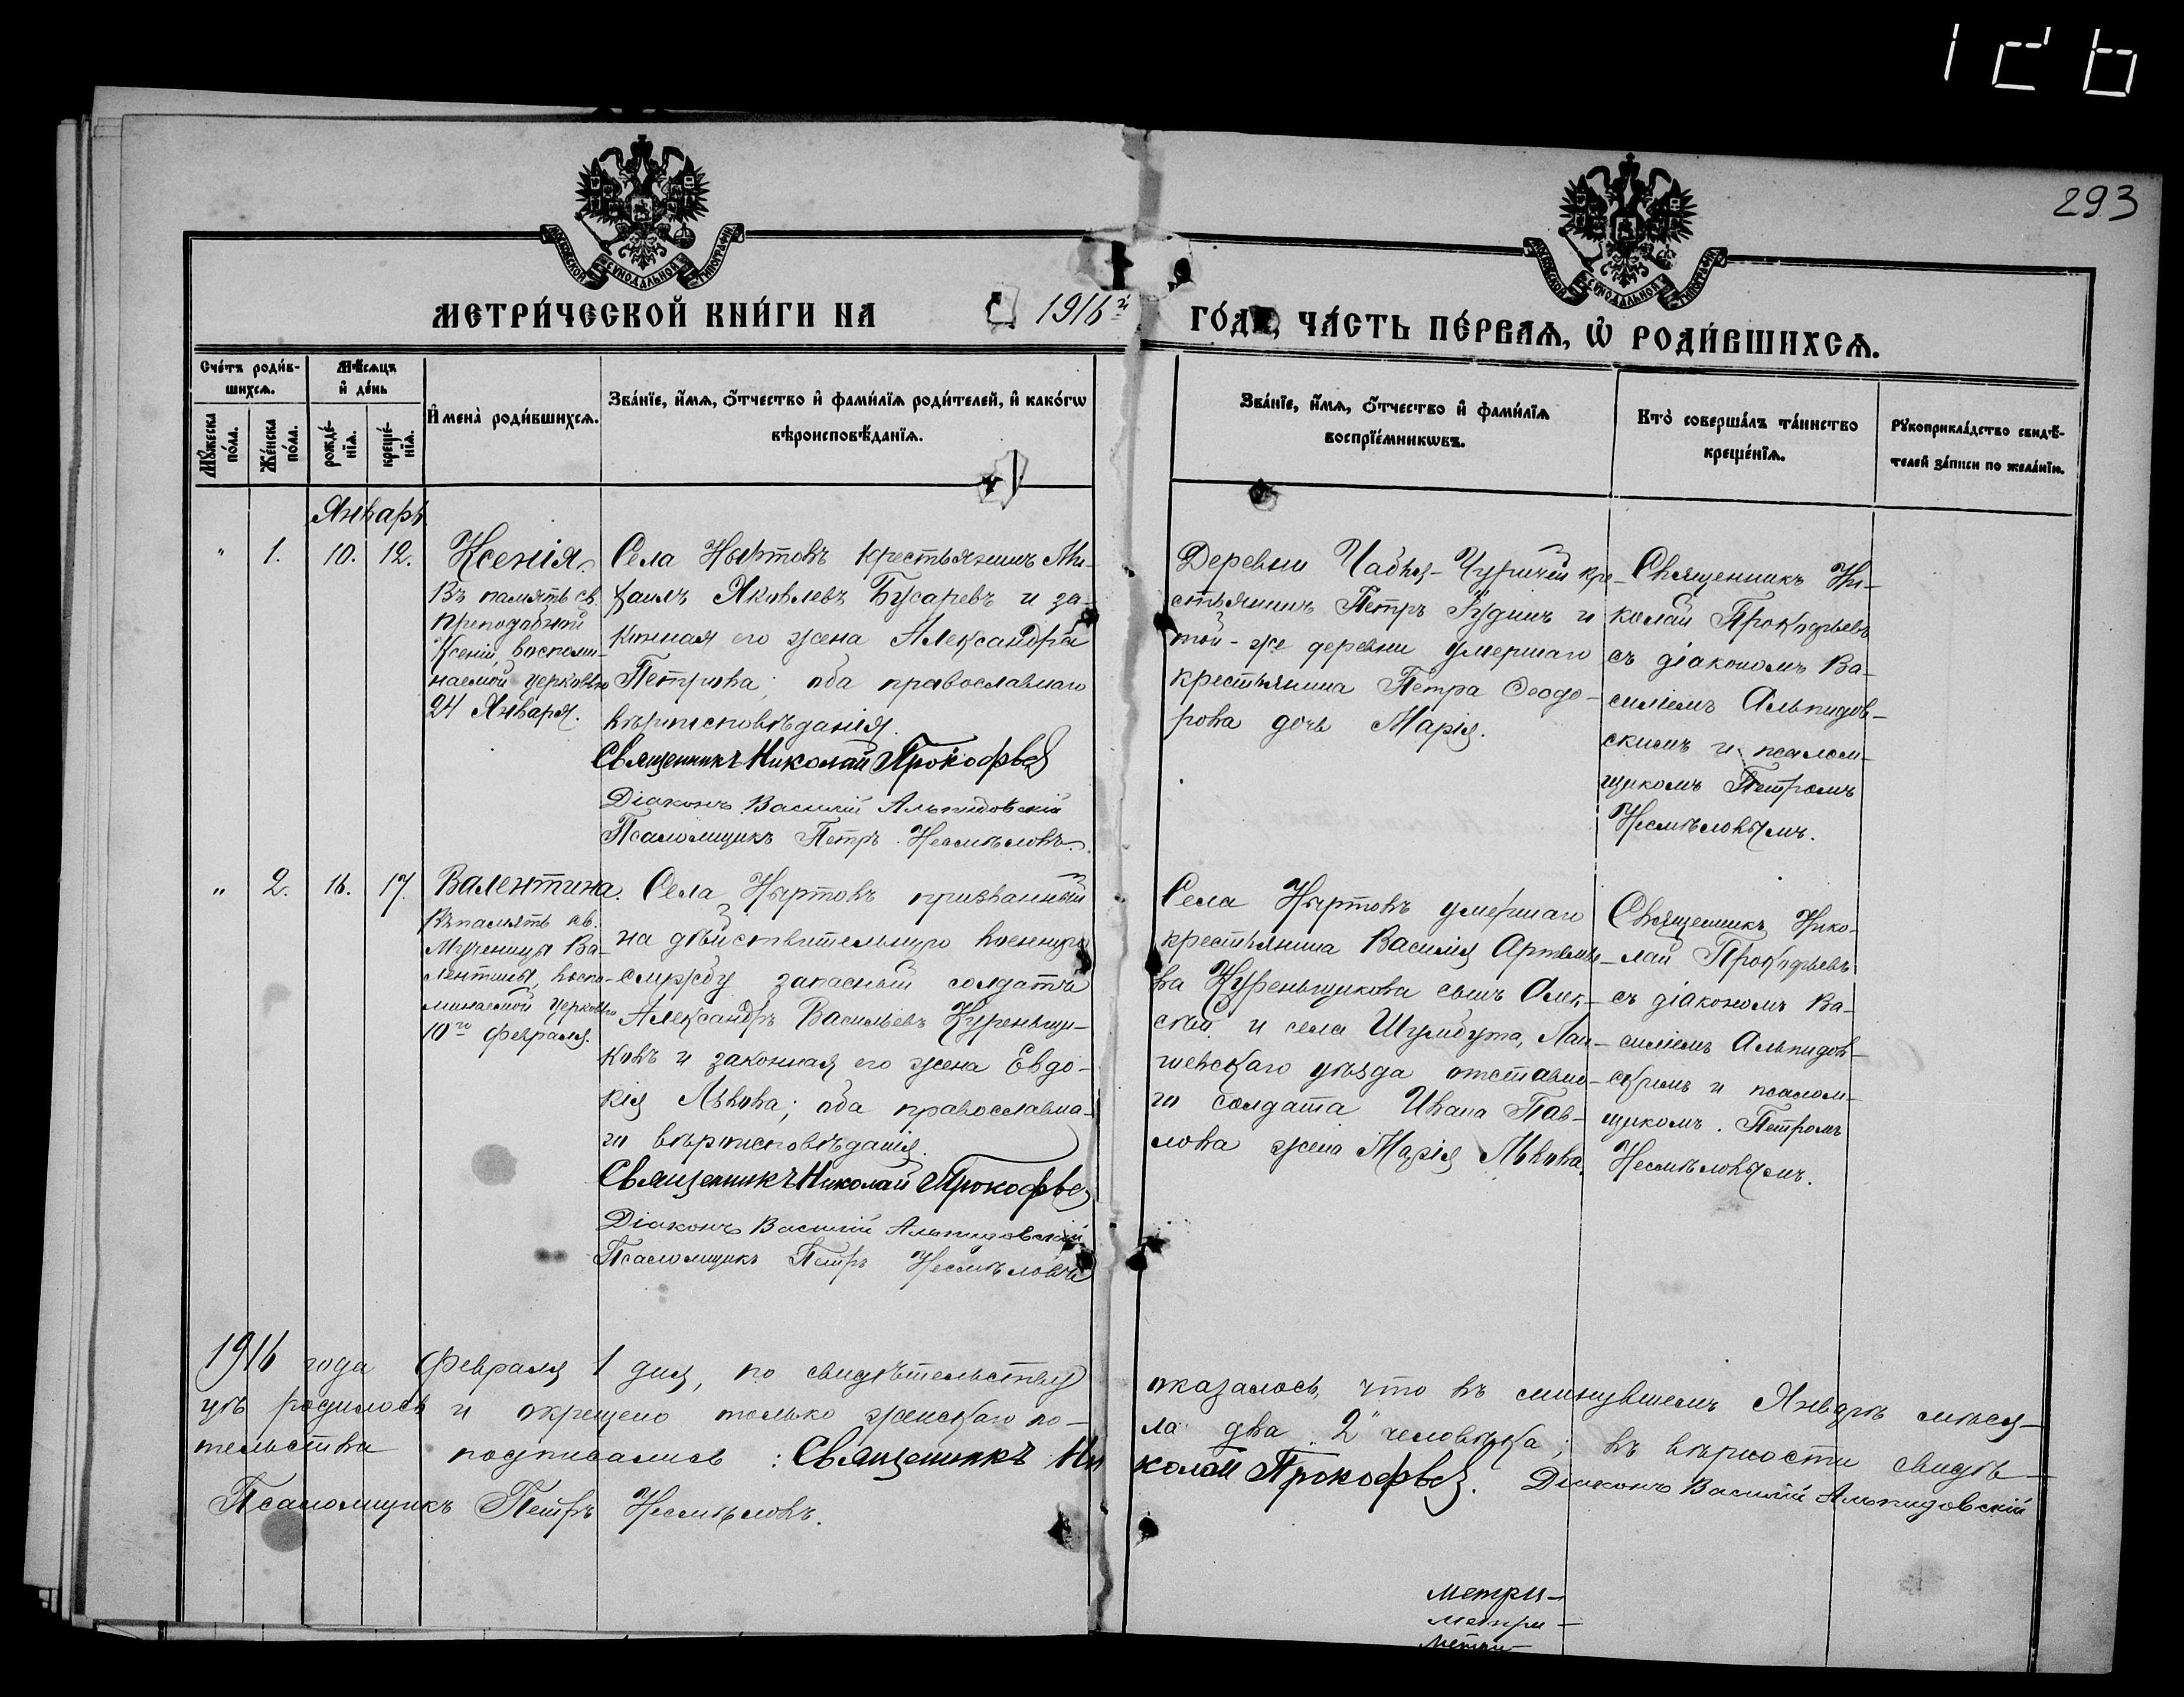 293
МОСКОВСКОЙ СѴНОДАЛЬНОЙ ТИПОГРАФІИ
МОСКОВСКОЙ СѴНОДАЛЬНОЙ ТИПОГРАФІИ
МЕТРИ́ЧЕСКОЙ КНИ́ГИ НА 1916й ГО́ДЪ, ЧА́СТЬ ПЕ́РВАѦ, Ѡ РОДИ́ВШИХСѦ.
Сче́тъ роди́в-
шихсѧ.
Мꙋ́жеска
по́ла.
Же́нска
по́ла.
Мѣ́сѧцъ
и҆ де́нь
рожде́-
нїѧ.
креще́-
нїѧ.
И҆мена̀ роди́вшихсѧ.
Зва́нїе, и҆́мѧ, ѻ҆́тчество и҆ фами́лїѧ роди́телей, и҆ како́гѡ
вѣроисповѣ́данїѧ.
Зва́нїе, и҆́мѧ, ѻ҆́тчество и҆ фами́лїѧ
воспрїе́мникѡвъ.
Кто̀ соверша́лъ та́инство
креще́нїѧ.
Рꙋкоприкла́дство свидѣ́-
телей за́писи по жела́нїю.
Январь
" 1. 10. 12.
Ксенія.
Въ память св.
преподобной
Ксеніи, воспоми-
наемой церковью
24 Января.
Села Нырповъ крестьянинъ Ми-
хаилъ Яковлевъ Бусаревъ и за-
конная его жена Александра
Петрова; оба православнаго
вѣроисповѣданія.
Священникъ Николай Прокофьевъ
Діаконъ Василій Альпидовскій
Псаломщикъ Петръ Несмѣловъ.
Деревни Чабья-Чурчей кре-
стьянинъ Петръ Гудинъ и
той-же деревни умершаго
крестьянина Петра Ѳеодо-
рова дочь Марія.
Священникъ Ни-
колай Прокофьевъ
съ діакономъ Ва-
силіемъ Альпидов-
скимъ и псалом-
щикомъ Петромъ
Несмѣловымъ.
" 2. 16. 17.
Валентина.
Въ память св.
Мученицы Ва-
лентины, воспо-
минаемой церковью
10го февраля.
Села Нырповъ призванный
на дѣйствительную военную
службу запасный солдатъ
Александръ Васильевъ Куренщи-
ковъ и законная его жена Евдо-
кія Львова; оба православна-
го вѣроисповѣданія.
Священникъ Николай Прокофьевъ
Діаконъ Василій Альпидовскій
Псаломщикъ Петръ Несмѣловъ
Села Нырповъ умершаго
крестьянина Василія Артемье-
ва Куренщикова сынъ Алек-
сѣй и села Шумбута, Лаи-
шевскаго уѣзда отставно-
го солдата Ивана Пав-
лова жена Марія Львова.
Священникъ Нико-
лай Прокофьевъ
съ діакономъ Ва-
силіемъ Альпидов-
скимъ и псалом-
щикомъ Петромъ
Несмѣловымъ.
1916 года Февраля 1 дня, по свидѣтельству оказалось, что въ минувшемъ Январѣ мѣся-
цѣ родилось и окрещено только женскаго по-ла два "2" человѣка; въ вѣрности свидѣ-
тельства подписались: Священникъ Николай Прокофьевъ. Діаконъ Василій Альпидовскій
Псаломщикъ Петръ Несмѣловъ.
Метри-
Метри-
Метри-